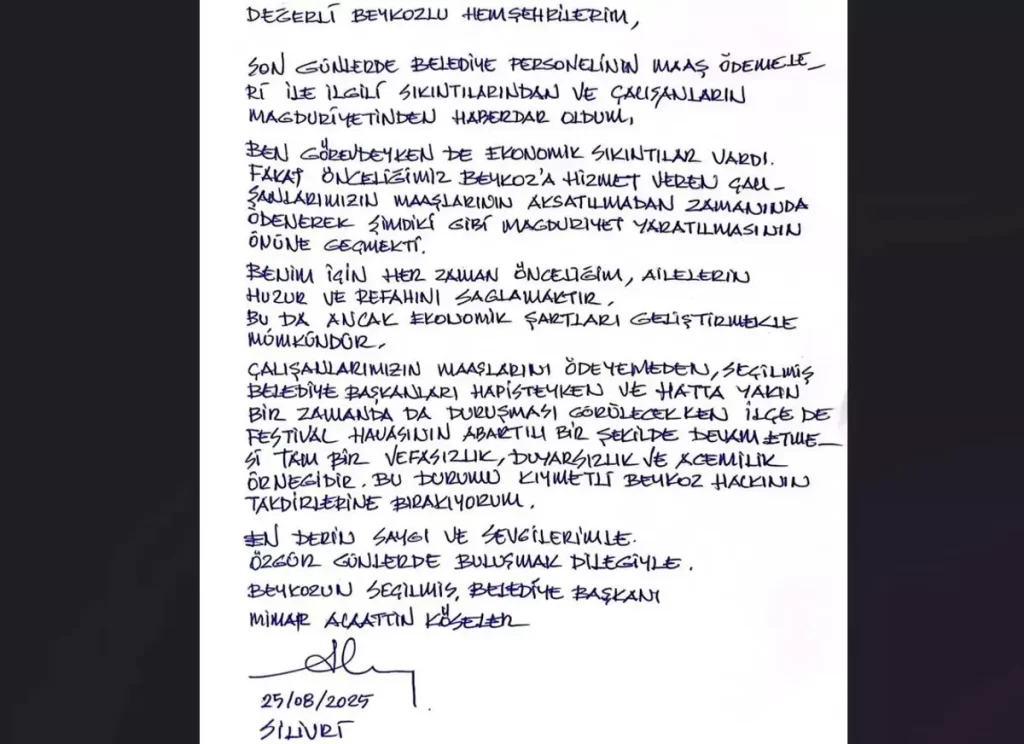 DEĞERLİ BEYKOZLU HEMŞEHRİLERİM,
SON GÜNLERDE BELEDİYE PERSONELİNİN MAAŞ ÖDEMELE_
Rİ İLE İLGİLİ SIKINTILARINDAN VE ÇALIŞANLARIN
MAGDURİYETİNDEN HABERDAR OLDUM,
BEN GÖREVDEYKEN DE EKONOMİK SIKINTILAR VARDI.
FAKAT ÖNCELİĞİMİZ BEYKOZ'A HİZMET VEREN ÇALI_
ŞANLARIMIZIN MAAŞLARININ AKSATILMADAN ZAMANINDA
ÖDENEREK ŞİMDİKİ GİBİ MAGDURİYET YARATILMASININ
ÖNÜNE GEÇMEKTİ.
BENİM İÇİN HER ZAMAN ÖNCELİĞİM, AİLELERİN
HUZUR VE REFAHINI SAGLAMAKTIR.
BU DA ANCAK EKONOMİK ŞARTLARI GELİŞTİRMEKLE
MÜMKÜNDÜR.
ÇALIŞANLARIMIZIN MAAŞLARINI ÖDEYEMEDEN, SEÇİLMİŞ
BELEDİYE BAŞKANLARI HAPİSTEYKEN VE HATTA YAKIN
BİR ZAMANDA DA DURUŞMASI GÖRÜLECEKKEN İLÇE DE
FESTİVAL HAVASININ ABARTILI BİR ŞEKİLDE DEVAM ETME_
Sİ TAM BİR VEFASIZLIK, DUYARSIZLIK VE ACEMİLİK
ÖRNEGİDİR. BU DURUMU KIYMETLİ BEYKOZ HALKININ
TAKDİRLERİNE BIRAKIYORUM.
EN DERİN SAYGI VE SEVGİLERİMLE.
ÖZGÜR GÜNLERDE BULUŞMAK DİLEGİYLE.
BEYKOZUN SEÇİLMİŞ, BELEDİYE BAŞKANI
MİMAR ALAATTİN KÖSELER
25/08/2025
SİLİVRİ